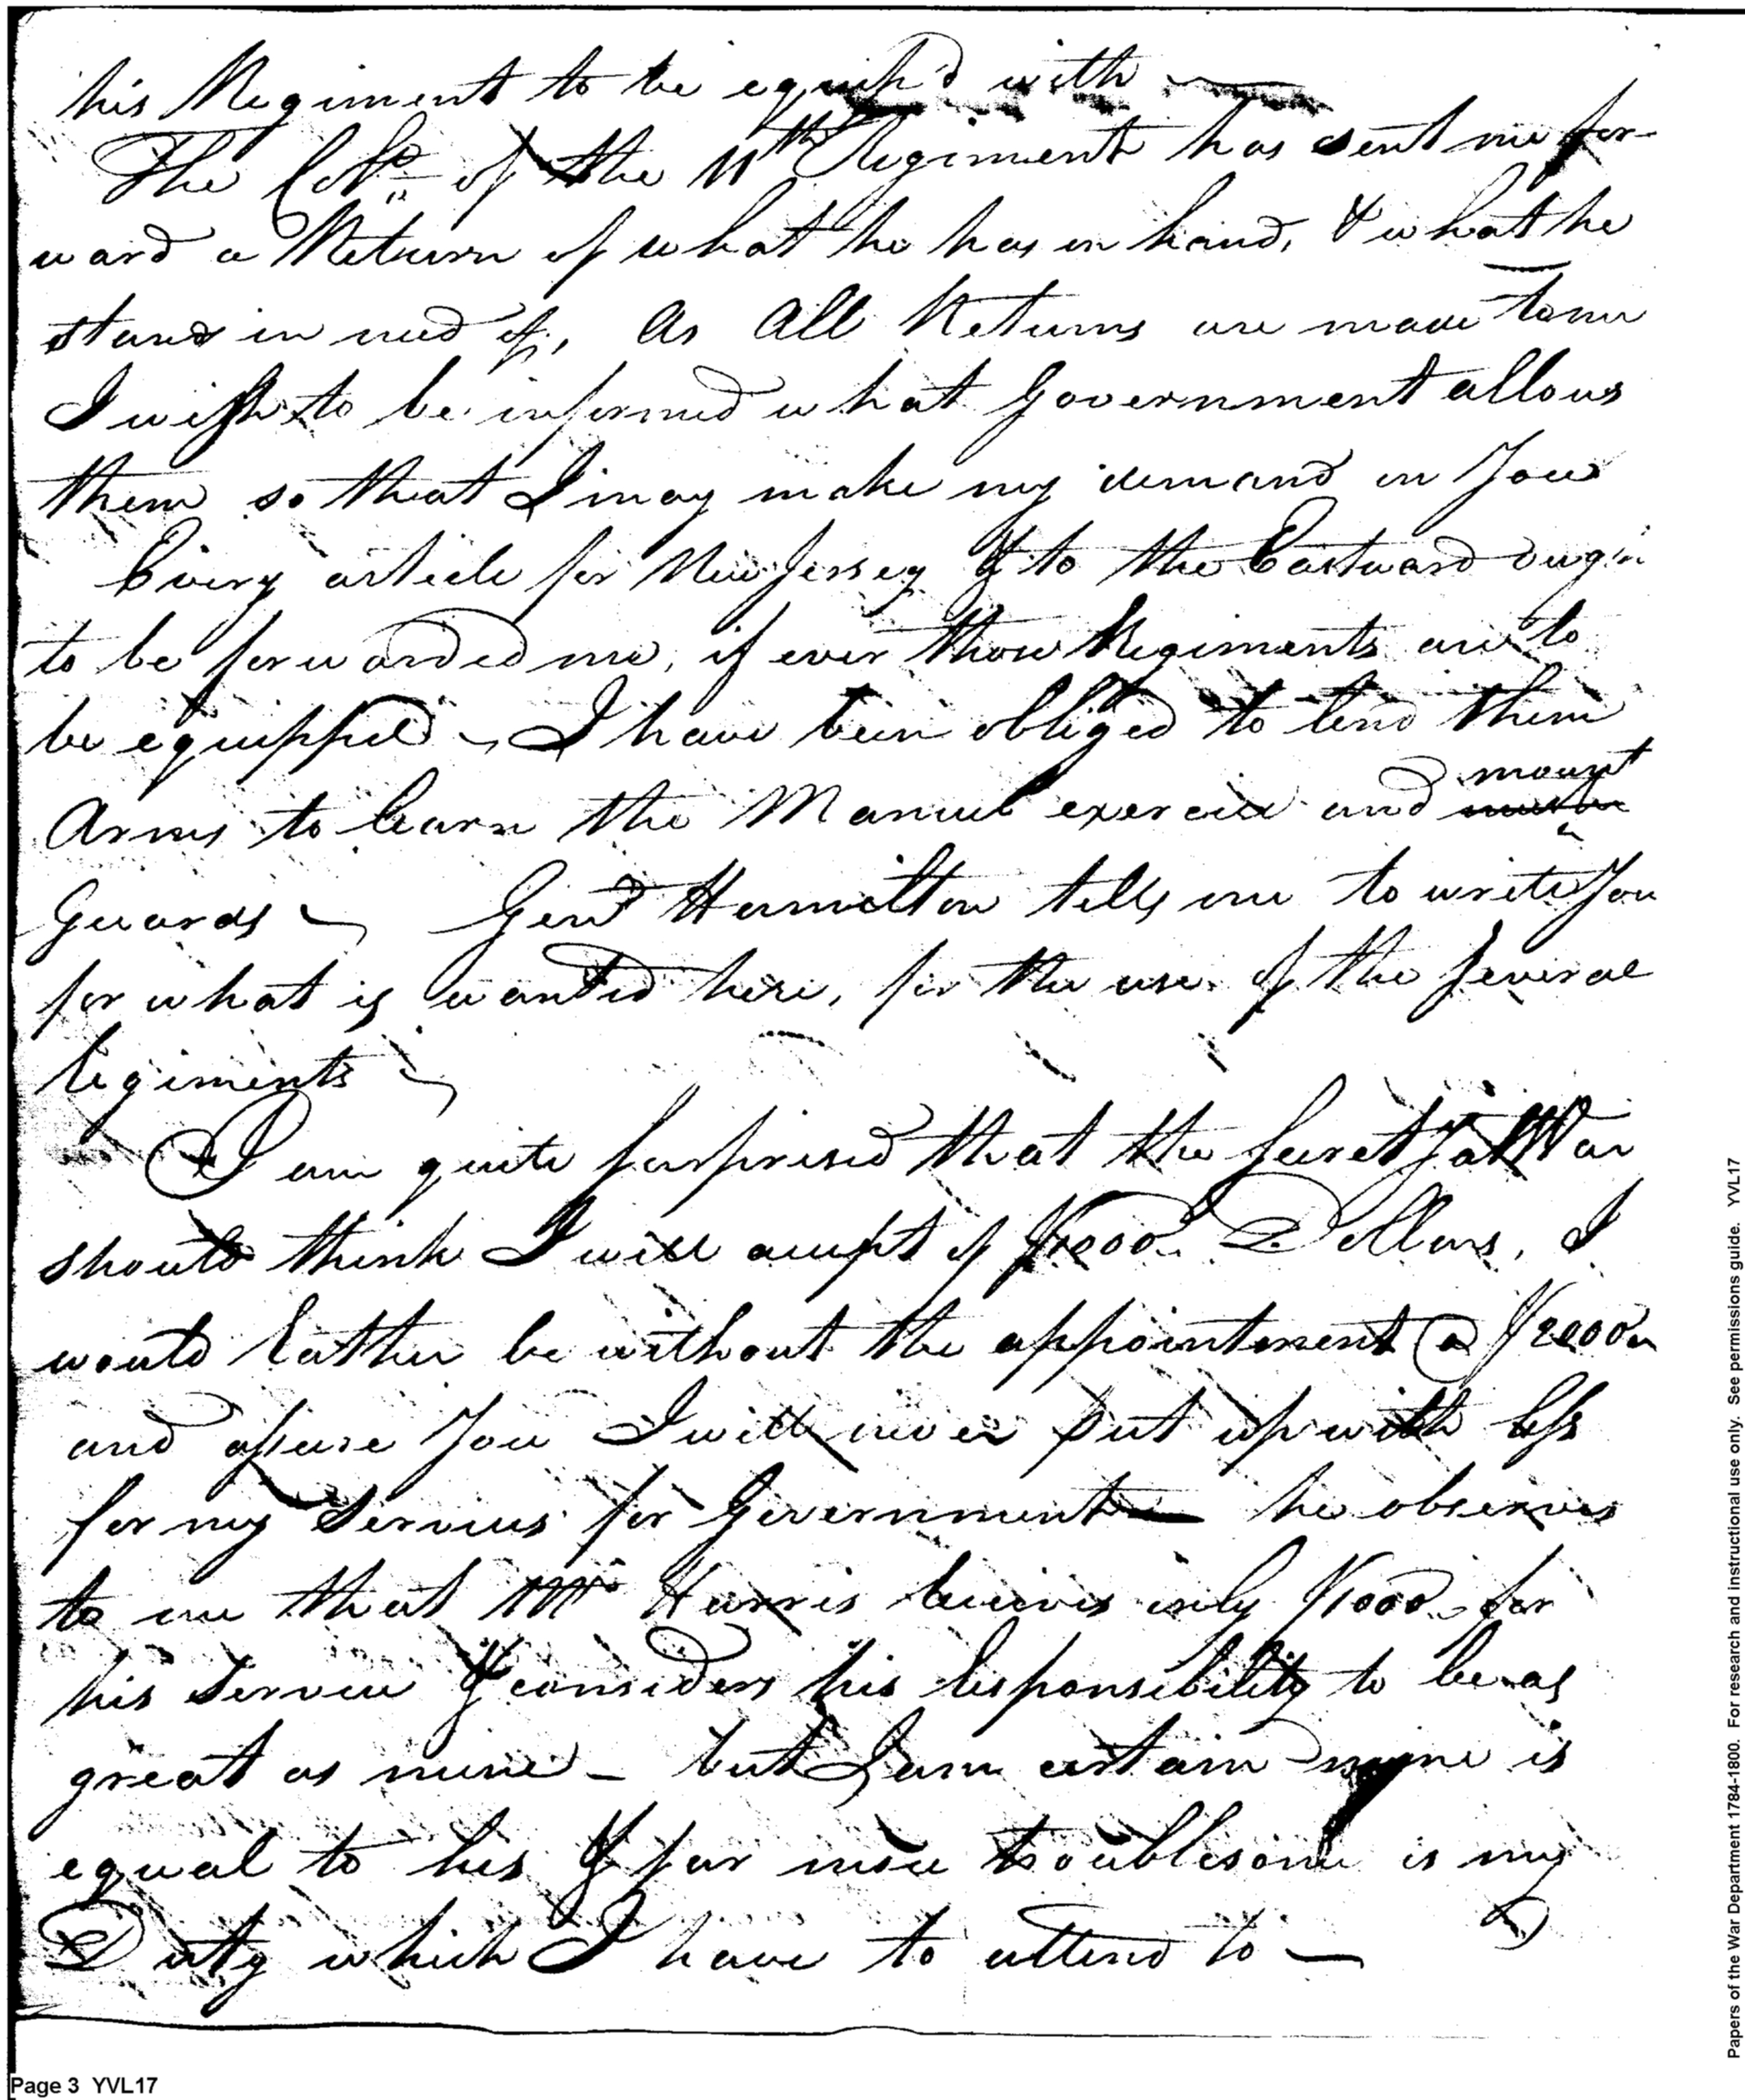 his Regiment to be equip'd with
The Colo. of the 11th Regiment has sent me for-
ward a Return of what he has on hand, & what he
stand in need of, As All Returns are made to me
I wish to be informed what Government allows
them so that I may make my demand on You
Every article for New Jersey & to the Eastward ought
to be forwarded me, if ever those Regiments are to
be equipped - I have been obliged to lend them
Arms to learn the Manuel exercise and mount
Guards - Genl Hamilton tells me to write You
for what is wanted here, for the use of the several
Regiments -
I am quite surprised that the Secrety at War
should think I will accept of $1000. Dollars, I
would rather be without the appointment @ $2000
and assure You I will never put up with less
for my Services for Government - he observes
to me that Mr Harris receives only $1000 for
his Service & considers his responsibility to be as
great as mine - but I am certain mine is
equal to his & far more troublesome is my
Duty which I have to attend to -
Page 3 YVL17
Papers of the War Department 1784-1800. For research and instructional use only. See permissions guide. YVL17